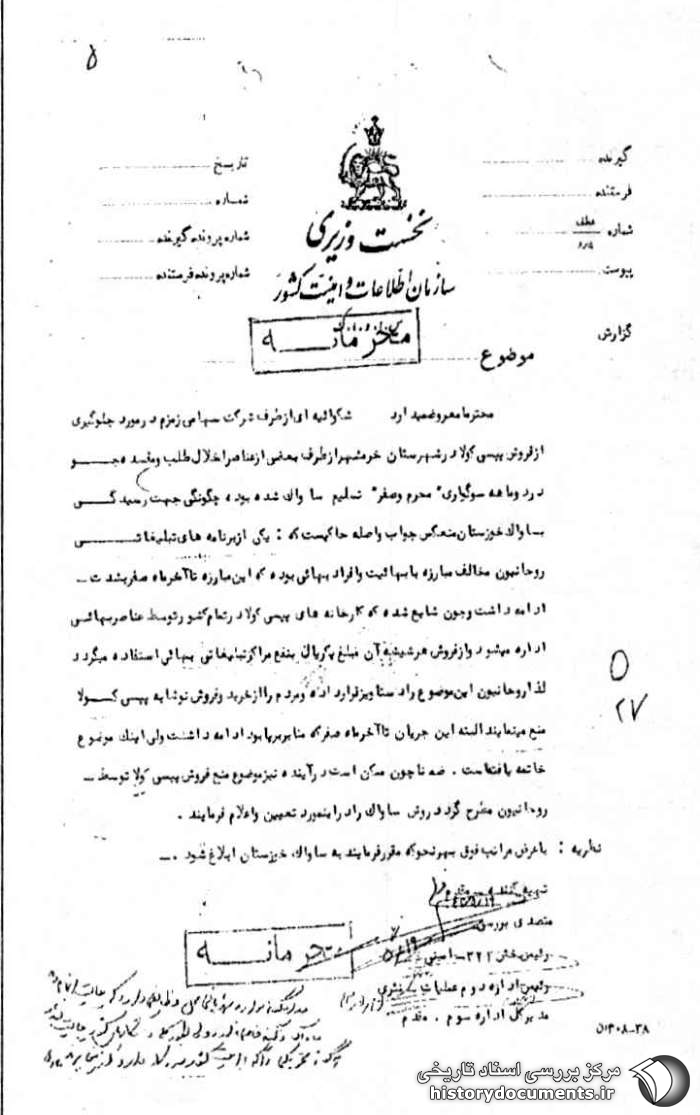 ۵
گیرنده
تاریخ
فرستنده
شماره
شماره عطف
شماره پرونده گیرنده
پیوست
شماره پرونده فرستنده
نخست وزیری
سازمان اطلاعات و امنیت کشور
گزارش
محرمانه
موضوع
محترما معروضمیدارد شکوائیه ای از طرف شرکت سهامی زمزم در مورد جلوگیری
از فروش پپسی کولا در شهرستان خرمشهر از طرف بعضی از عناصر اخلال طلب و مفسده جو
در دو ماهه سوگواری "محرم و صفر" تسلیم ساواک شده بود، چگونگی جهت رسیدگی
بساواک خوزستان منعکس جواب واصله حاکیست که : یکی از برنامه های تبلیغاتی
روحانیون مخالف مبارزه با بهائیت و افراد بهائی بوده که این مبارزه تا آخر ماه صفر بشدت ـ
ادامه داشت و چون شایع شده که کارخانه های پپسی کولا در تمام کشور توسط عناصر بهائی
اداره میشود و از فروش هر شیشه آن مبلغ یکریال بنفع مراکز تبلیغاتی بهائی استفاده میگردد
لذا روحانیون این موضوع را دستاویز قرار داده و مردم را از خرید و فروش نوشابه پپسی کولا
منع مینمایند البته این جریان تا آخر ماه صفر که منابر برپا بود ادامه داشت ولی اینک موضوع
خاتمه یافته است . ضمناً چون ممکن است در آینده نیز موضوع منع فروش پپسی کولا توسط ـ
روحانیون مطرح گردد روش ساواک را در اینمورد تعیین و اعلام فرمایند .
نظریه : با عرض مراتب فوق بهر نحو که مقرر فرمایند به ساواک خوزستان ابلاغ شود .ـ
۵
۲۷
تهیه کننده
متصدی بررسی
رئیس بخش ۳۲۲ ـ امینی
رئیس اداره دوم عملیات
مدیر کل اداره سوم . مقدم
محرمانه
۳۸-۵۱۴۰۸
مرکز بررسی اسناد تاریخی
historydocuments.ir